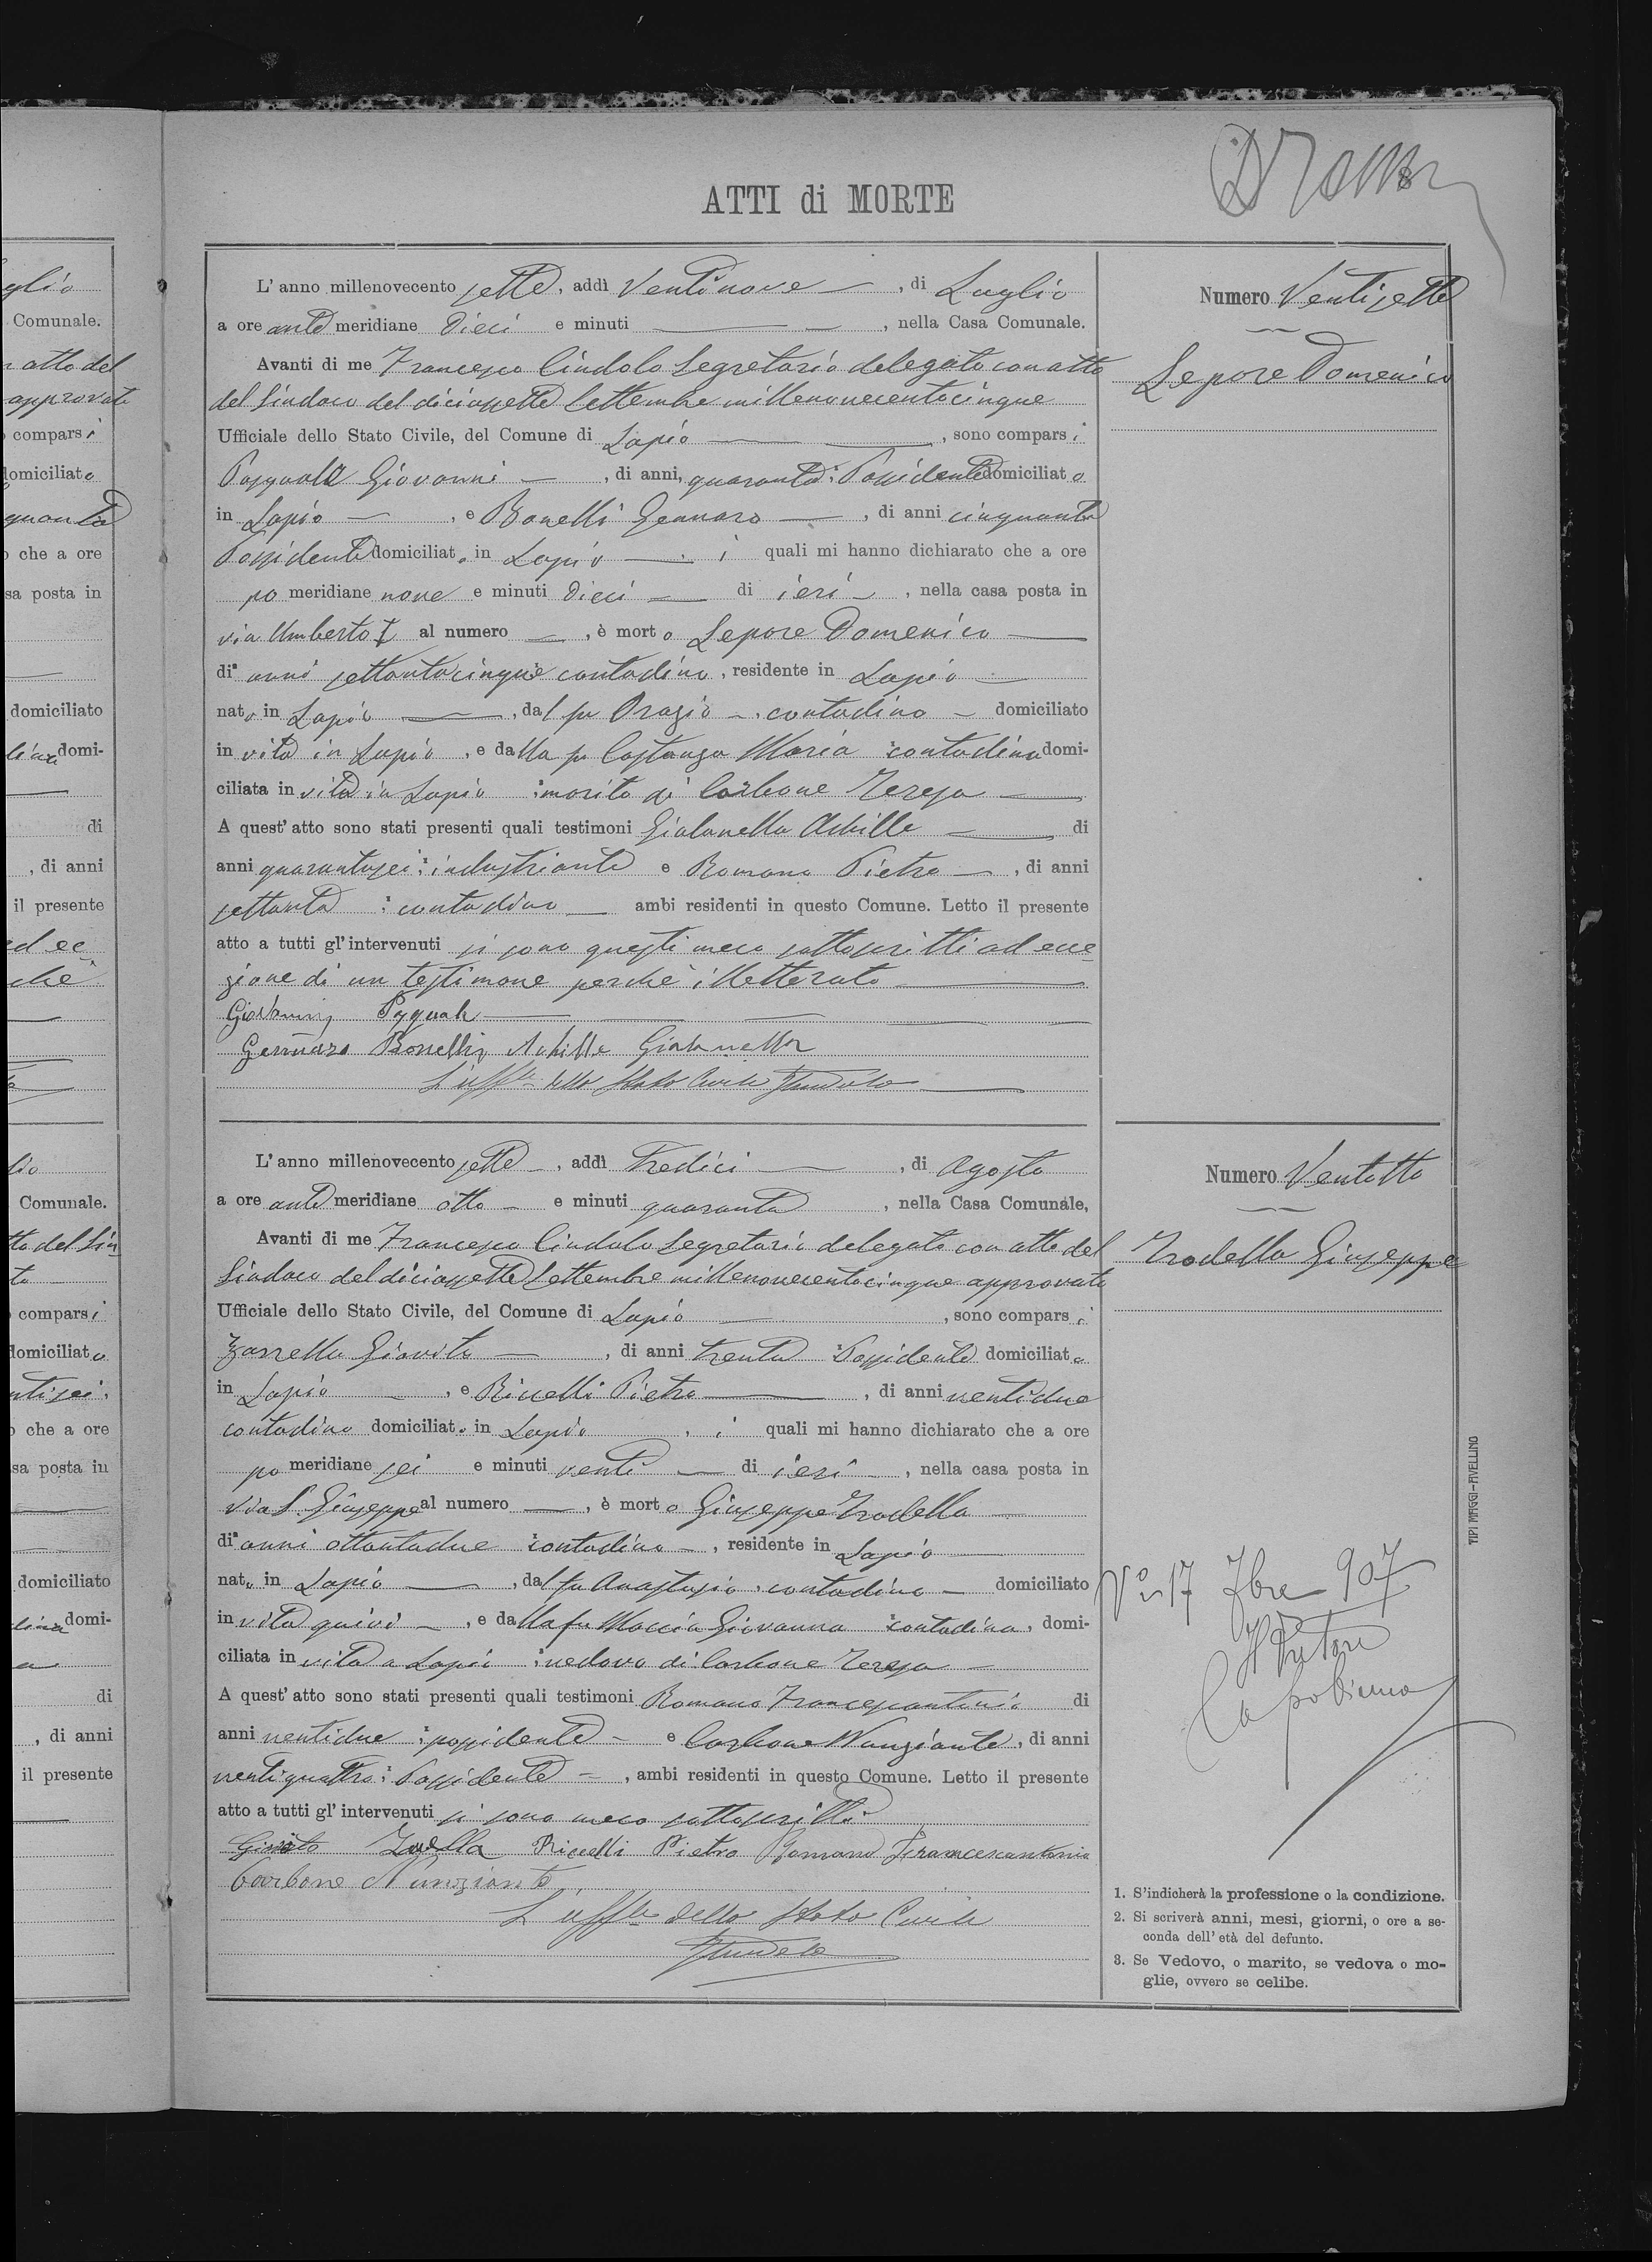 ATTI di MORTE
8
L'anno millenovecento sette, addì Ventinove, di Luglio
a ore ante meridiane dieci e minuti, nella Casa Comunale.
Avanti di me Francesco Cindolo Segretario delegato con atto
del Sindaco del diciassette Settembre millenovecentocinque
Ufficiale dello Stato Civile, del Comune di Lapio, sono comparsi
Pasquale Giovanni, di anni, quaranta; Possidente domiciliato
in Lapio, e Bonelli Gennaro, di anni cinquanta
Possidente domiciliato in Lapio, i quali mi hanno dichiarato che a ore
po meridiane nove e minuti dieci di ieri, nella casa posta in
via Umberto I al numero, è morto Lepore Domenico
di anni settantacinque contadino, residente in Lapio
nato in Lapio, dal fu Orazio, contadino domiciliato
in vita in Lapio, e dalla fu Costanza Maria contadina domi-
ciliata in vita in Lapio; marito di Carbone Teresa
A quest'atto sono stati presenti quali testimoni Gialanella Achille di
anni quarantasei; industriante e Romano Pietro, di anni
settanta; contadino ambi residenti in questo Comune. Letto il presente
atto a tutti gl'intervenuti si sono questi meco sottoscritti ad ecce
zione di un testimone perchè illetterato
Giovanni Pasquale
Gennaro Bonelli, Achille Gialanella
L'uff.le dello Stato Civile FCindolo
Numero Ventisette
Lepore Domenico
L'anno millenovecento sette, addì Tredici, di Agosto
a ore ante meridiane otto e minuti quaranta, nella Casa Comunale,
Avanti di me Francesco Cindolo Segretario delegato con atto del
Sindaco del diciassette Settembre millenovecentocinque approvato
Ufficiale dello Stato Civile, del Comune di Lapio, sono comparsi
Zarrella Giovito, di anni trenta Possidente domiciliato
in Lapio, e Ricelli Pietro, di anni ventidue
contadino domiciliato in Lapio, i quali mi hanno dichiarato che a ore
po meridiane sei e minuti venti di ieri, nella casa posta in
Via S. Giuseppe al numero, è morto Giuseppe Trodella
di anni ottantadue contadino, residente in Lapio
nato in Lapio, dal fu Anastasio, contadino domiciliato
in vita quivi, e dalla fu Maccia Giovanna contadina, domi-
ciliata in vita a Lapio; vedovo di Carbone Teresa
A quest'atto sono stati presenti quali testimoni Romano Francescantonio di
anni ventidue; possidente e Carbone Nunziante, di anni
ventiquattro; Possidente, ambi residenti in questo Comune. Letto il presente
atto a tutti gl'intervenuti si sono meco sottoscritti
Giovito Zarella Ricelli Pietro Romano Francescantonio
Carbone Nunziante
L'uff.le dello Stato Civile
FCindolo
Numero Ventotto
Trodella Giuseppe
V° 17 7bre 907
Il Pretore
Capobianco
1. S'indicherà la professione o la condizione.
2. Si scriverà anni, mesi, giorni, o ore a se-
conda dell'età del defunto.
3. Se Vedovo, o marito, se vedova o mo-
glie, ovvero se celibe.
TIPI MAGGI-AVELLINO
glio
Comunale.
atto del
approvato
comparsi
domiciliato
quanta
che a ore
sa posta in
domiciliato
domi-
di
, di anni
il presente
ed ec
chè
lio
Comunale.
tto del Sin
to
comparsi
domiciliato
ntisei,
che a ore
sa posta in
domiciliato
domi-
di
, di anni
il presente